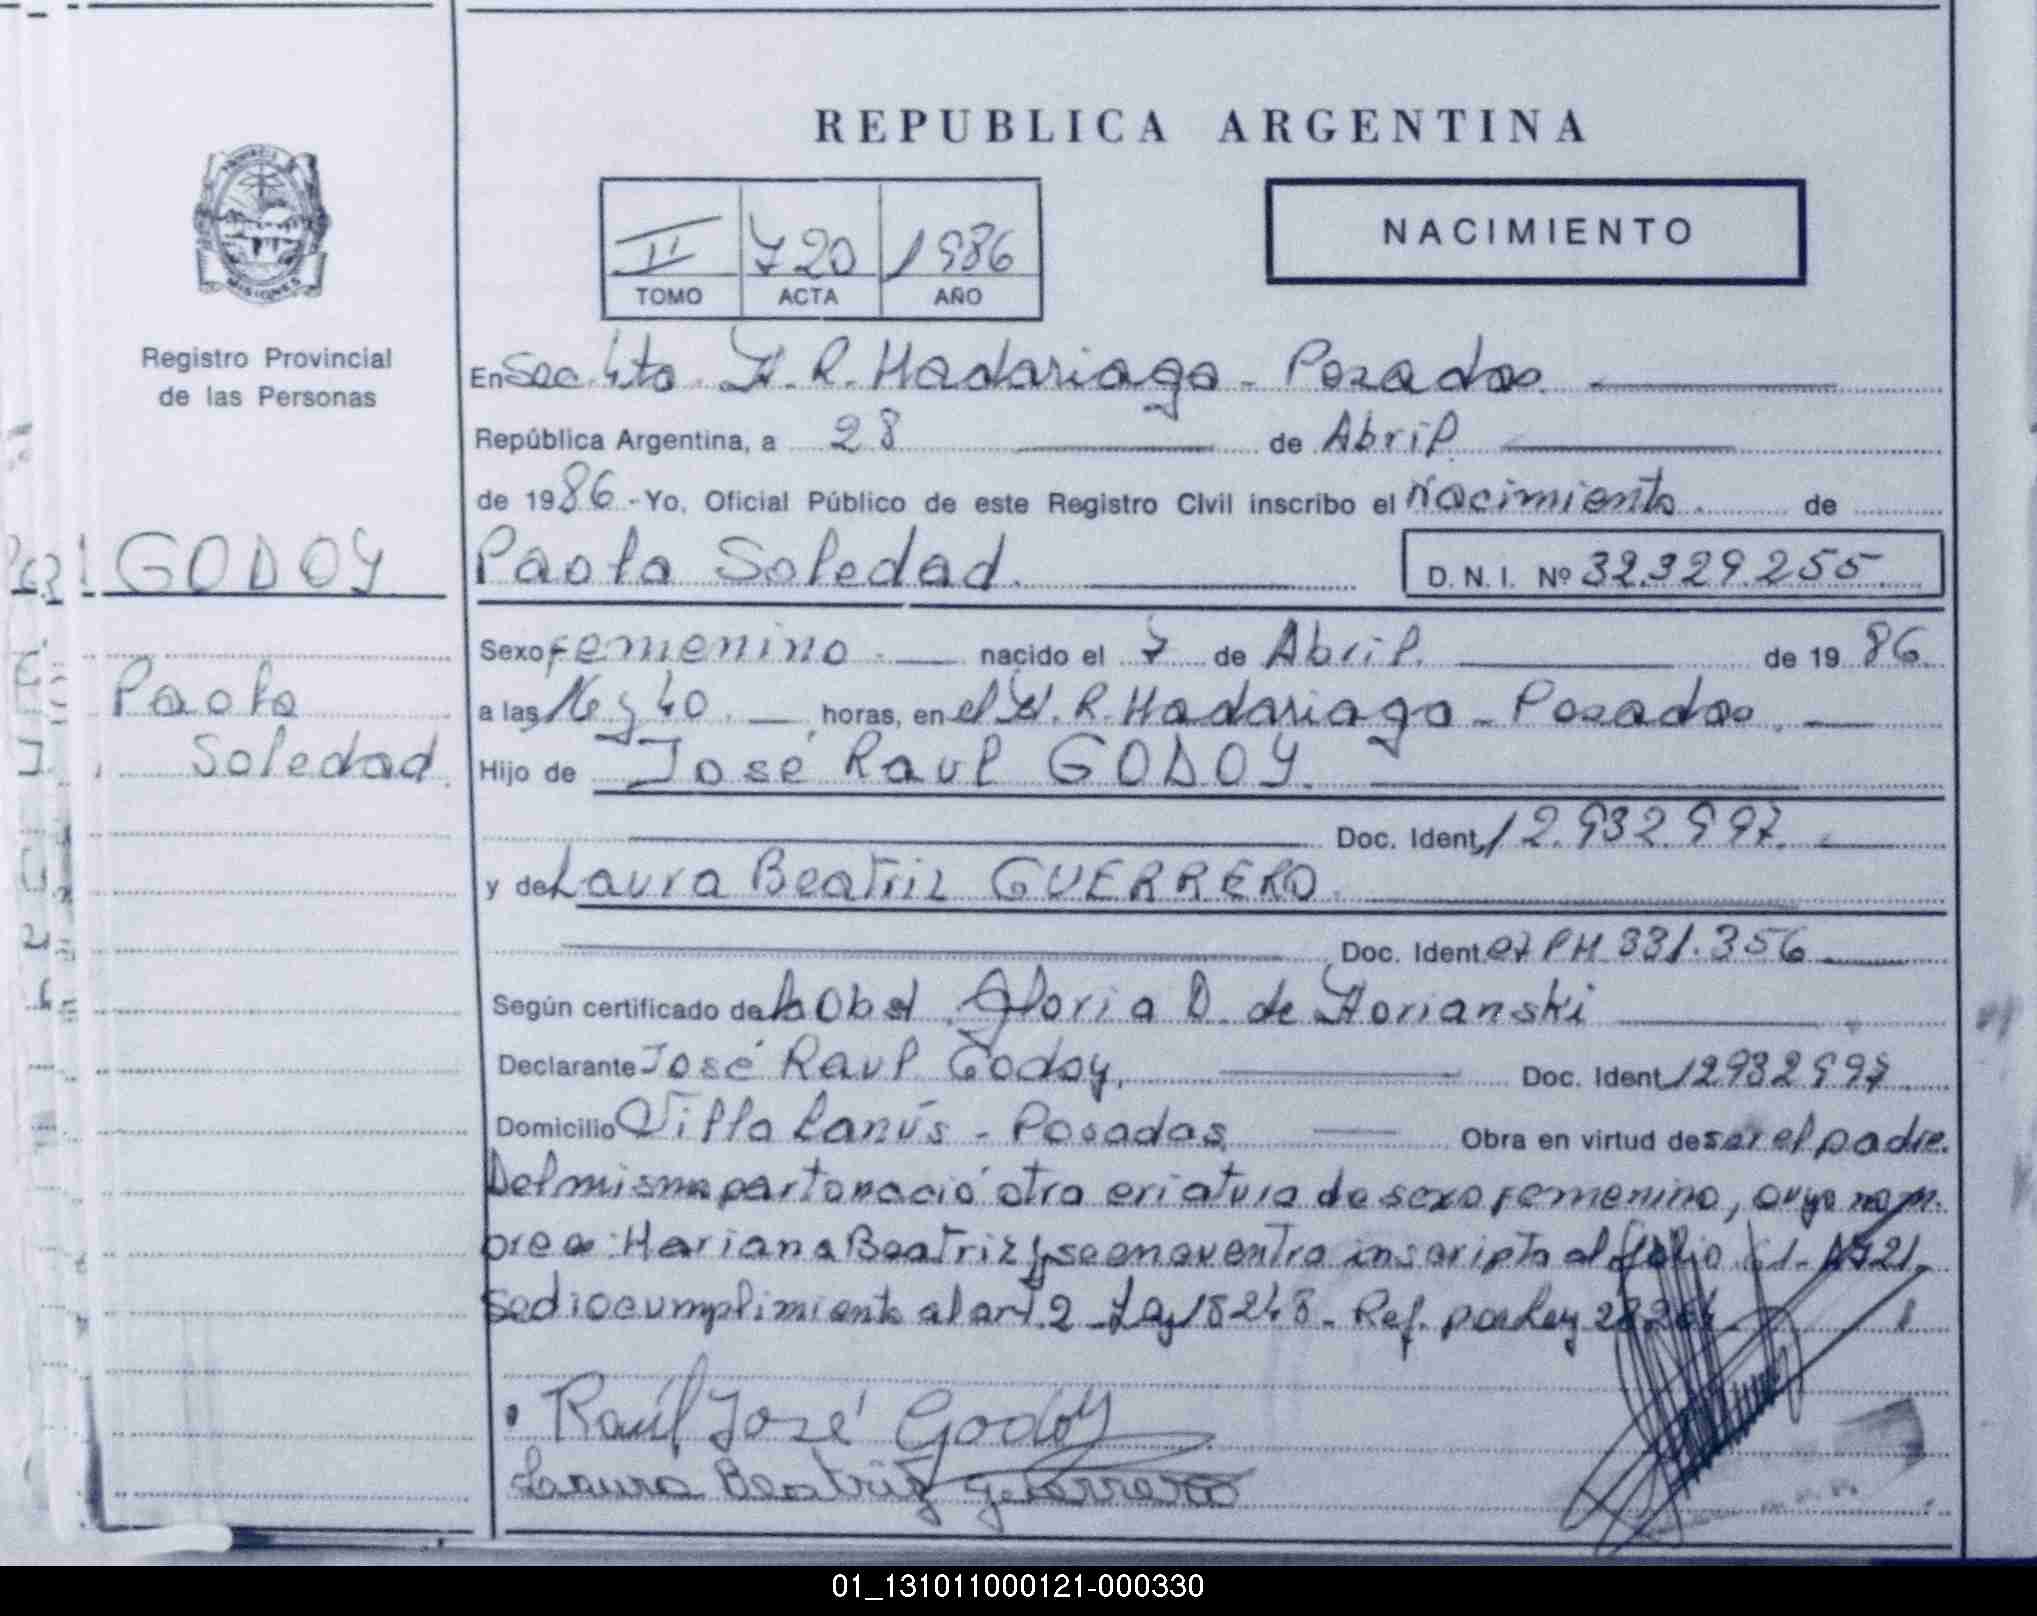 REPUBLICA ARGENTINA
II 720 1986
TOMO ACTA AÑO
NACIMIENTO
PROVINCIA DE
MISIONES
Registro Provincial
de las Personas
GODOY
Paola
Soledad.
En Sec. 4ta. H. R. Madariaga - Posadas.
República Argentina, a 28 de Abril
de 1986.- Yo, Oficial Público de este Registro Civil inscribo el Nacimiento. de
Paola Soledad. D. N. I. Nº 32.329.255
Sexo Femenino. nacido el 7 de Abril. de 19 86.
a las 16 y 40. horas, en el H. R. Madariaga - Posadas.
Hijo de José Raul GODOY.
Doc. Ident. 12.932.997.
y de Laura Beatriz GUERRERO.
Doc. Ident. PM 331.356
Según certificado de la Obst. Gloria D. de Horianski
Declarante José Raul Godoy, Doc. Ident. 12932997
Domicilio Villa Lanús - Posadas Obra en virtud de ser el padre.
Del mismo parto nació otra criatura de sexo femenino, cuyo nom-
bre es: Mariana Beatriz y se encuentra inscripta al folio
Se dio cumplimiento al art. 2 - Ley 18248 - Ref. por Ley
Raúl José Godoy
Laura Beatriz Guerrero
01_131011000121-000330